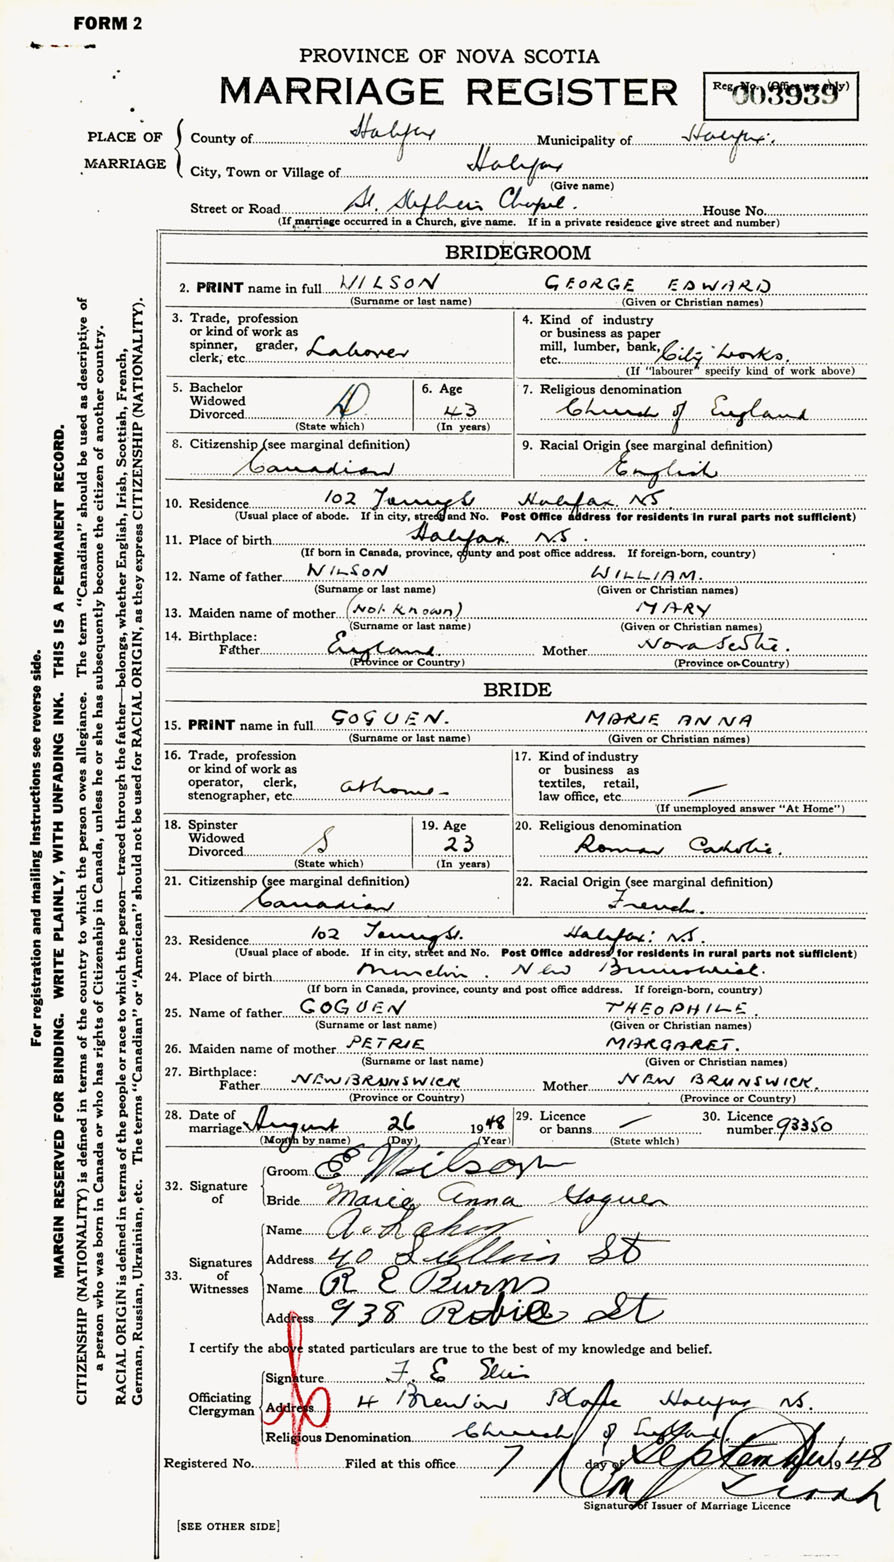 FORM 2
PROVINCE OF NOVA SCOTIA
MARRIAGE REGISTER
Reg. No. (Office use only)
003939
PLACE OF MARRIAGE
County of Halifax Municipality of Halifax.
City, Town or Village of Halifax
(Give name)
Street or Road St. Stephen's Chapel. House No.
(If marriage occurred in a Church, give name. If in a private residence give street and number)
BRIDEGROOM
2. PRINT name in full WILSON GEORGE EDWARD
(Surname or last name) (Given or Christian names)
3. Trade, profession or kind of work as spinner, grader, clerk, etc. Laborer
4. Kind of industry or business as paper mill, lumber, bank, etc. City Works.
(If "labourer" specify kind of work above)
5. Bachelor Widowed Divorced D
(State which)
6. Age 43
(In years)
7. Religious denomination Church of England
8. Citizenship (see marginal definition) Canadian
9. Racial Origin (see marginal definition) English
10. Residence 102 Halifax NS.
(Usual place of abode. If in city, street and No. Post Office address for residents in rural parts not sufficient)
11. Place of birth Halifax. NS.
(If born in Canada, province, county and post office address. If foreign-born, country)
12. Name of father WILSON WILLIAM.
(Surname or last name) (Given or Christian names)
13. Maiden name of mother (Not Known) MARY
(Surname or last name) (Given or Christian names)
14. Birthplace:
Father England Mother Nova Scotia.
(Province or Country) (Province or Country)
BRIDE
15. PRINT name in full GOGUEN. MARIE ANNA
(Surname or last name) (Given or Christian names)
16. Trade, profession or kind of work as operator, clerk, stenographer, etc. at home
17. Kind of industry or business as textiles, retail, law office, etc. —
(If unemployed answer "At Home")
18. Spinster Widowed Divorced S
(State which)
19. Age 23
(In years)
20. Religious denomination Roman Catholic.
21. Citizenship (see marginal definition) Canadian
22. Racial Origin (see marginal definition) French.
23. Residence 102 Halifax. N.S.
(Usual place of abode. If in city, street and No. Post Office address for residents in rural parts not sufficient)
24. Place of birth New Brunswick.
(If born in Canada, province, county and post office address. If foreign-born, country)
25. Name of father GOGUEN THEOPHILE.
(Surname or last name) (Given or Christian names)
26. Maiden name of mother PETRIE MARGARET.
(Surname or last name) (Given or Christian names)
27. Birthplace:
Father NEW BRUNSWICK Mother NEW BRUNSWICK.
(Province or Country) (Province or Country)
28. Date of marriage August 26 1948
(Month by name) (Day) (Year)
29. Licence or banns —
(State which)
30. Licence number 93350
32. Signature of
Groom E Wilson
Bride Marie Anna Goguen
33. Signatures of Witnesses
Name
Address 40 St
Name R E Burns
Address 938 Robie St
I certify the above stated particulars are true to the best of my knowledge and belief.
Officiating Clergyman
Signature F. E.
Address 4 Place Halifax NS.
Religious Denomination Church of England
Registered No. Filed at this office 7 day of September 1948
Signature of Issuer of Marriage Licence
[SEE OTHER SIDE]
For registration and mailing instructions see reverse side.
MARGIN RESERVED FOR BINDING. WRITE PLAINLY, WITH UNFADING INK. THIS IS A PERMANENT RECORD.
CITIZENSHIP (NATIONALITY) is defined in terms of the country to which the person owes allegiance. The term "Canadian" should be used as descriptive of
a person who was born in Canada or who has rights of Citizenship in Canada, unless he or she has subsequently become the citizen of another country.
RACIAL ORIGIN is defined in terms of the people or race to which the person—traced through the father—belongs, whether English, Irish, Scottish, French,
German, Russian, Ukrainian, etc. The terms "Canadian" or "American" should not be used for RACIAL ORIGIN, as they express CITIZENSHIP (NATIONALITY).